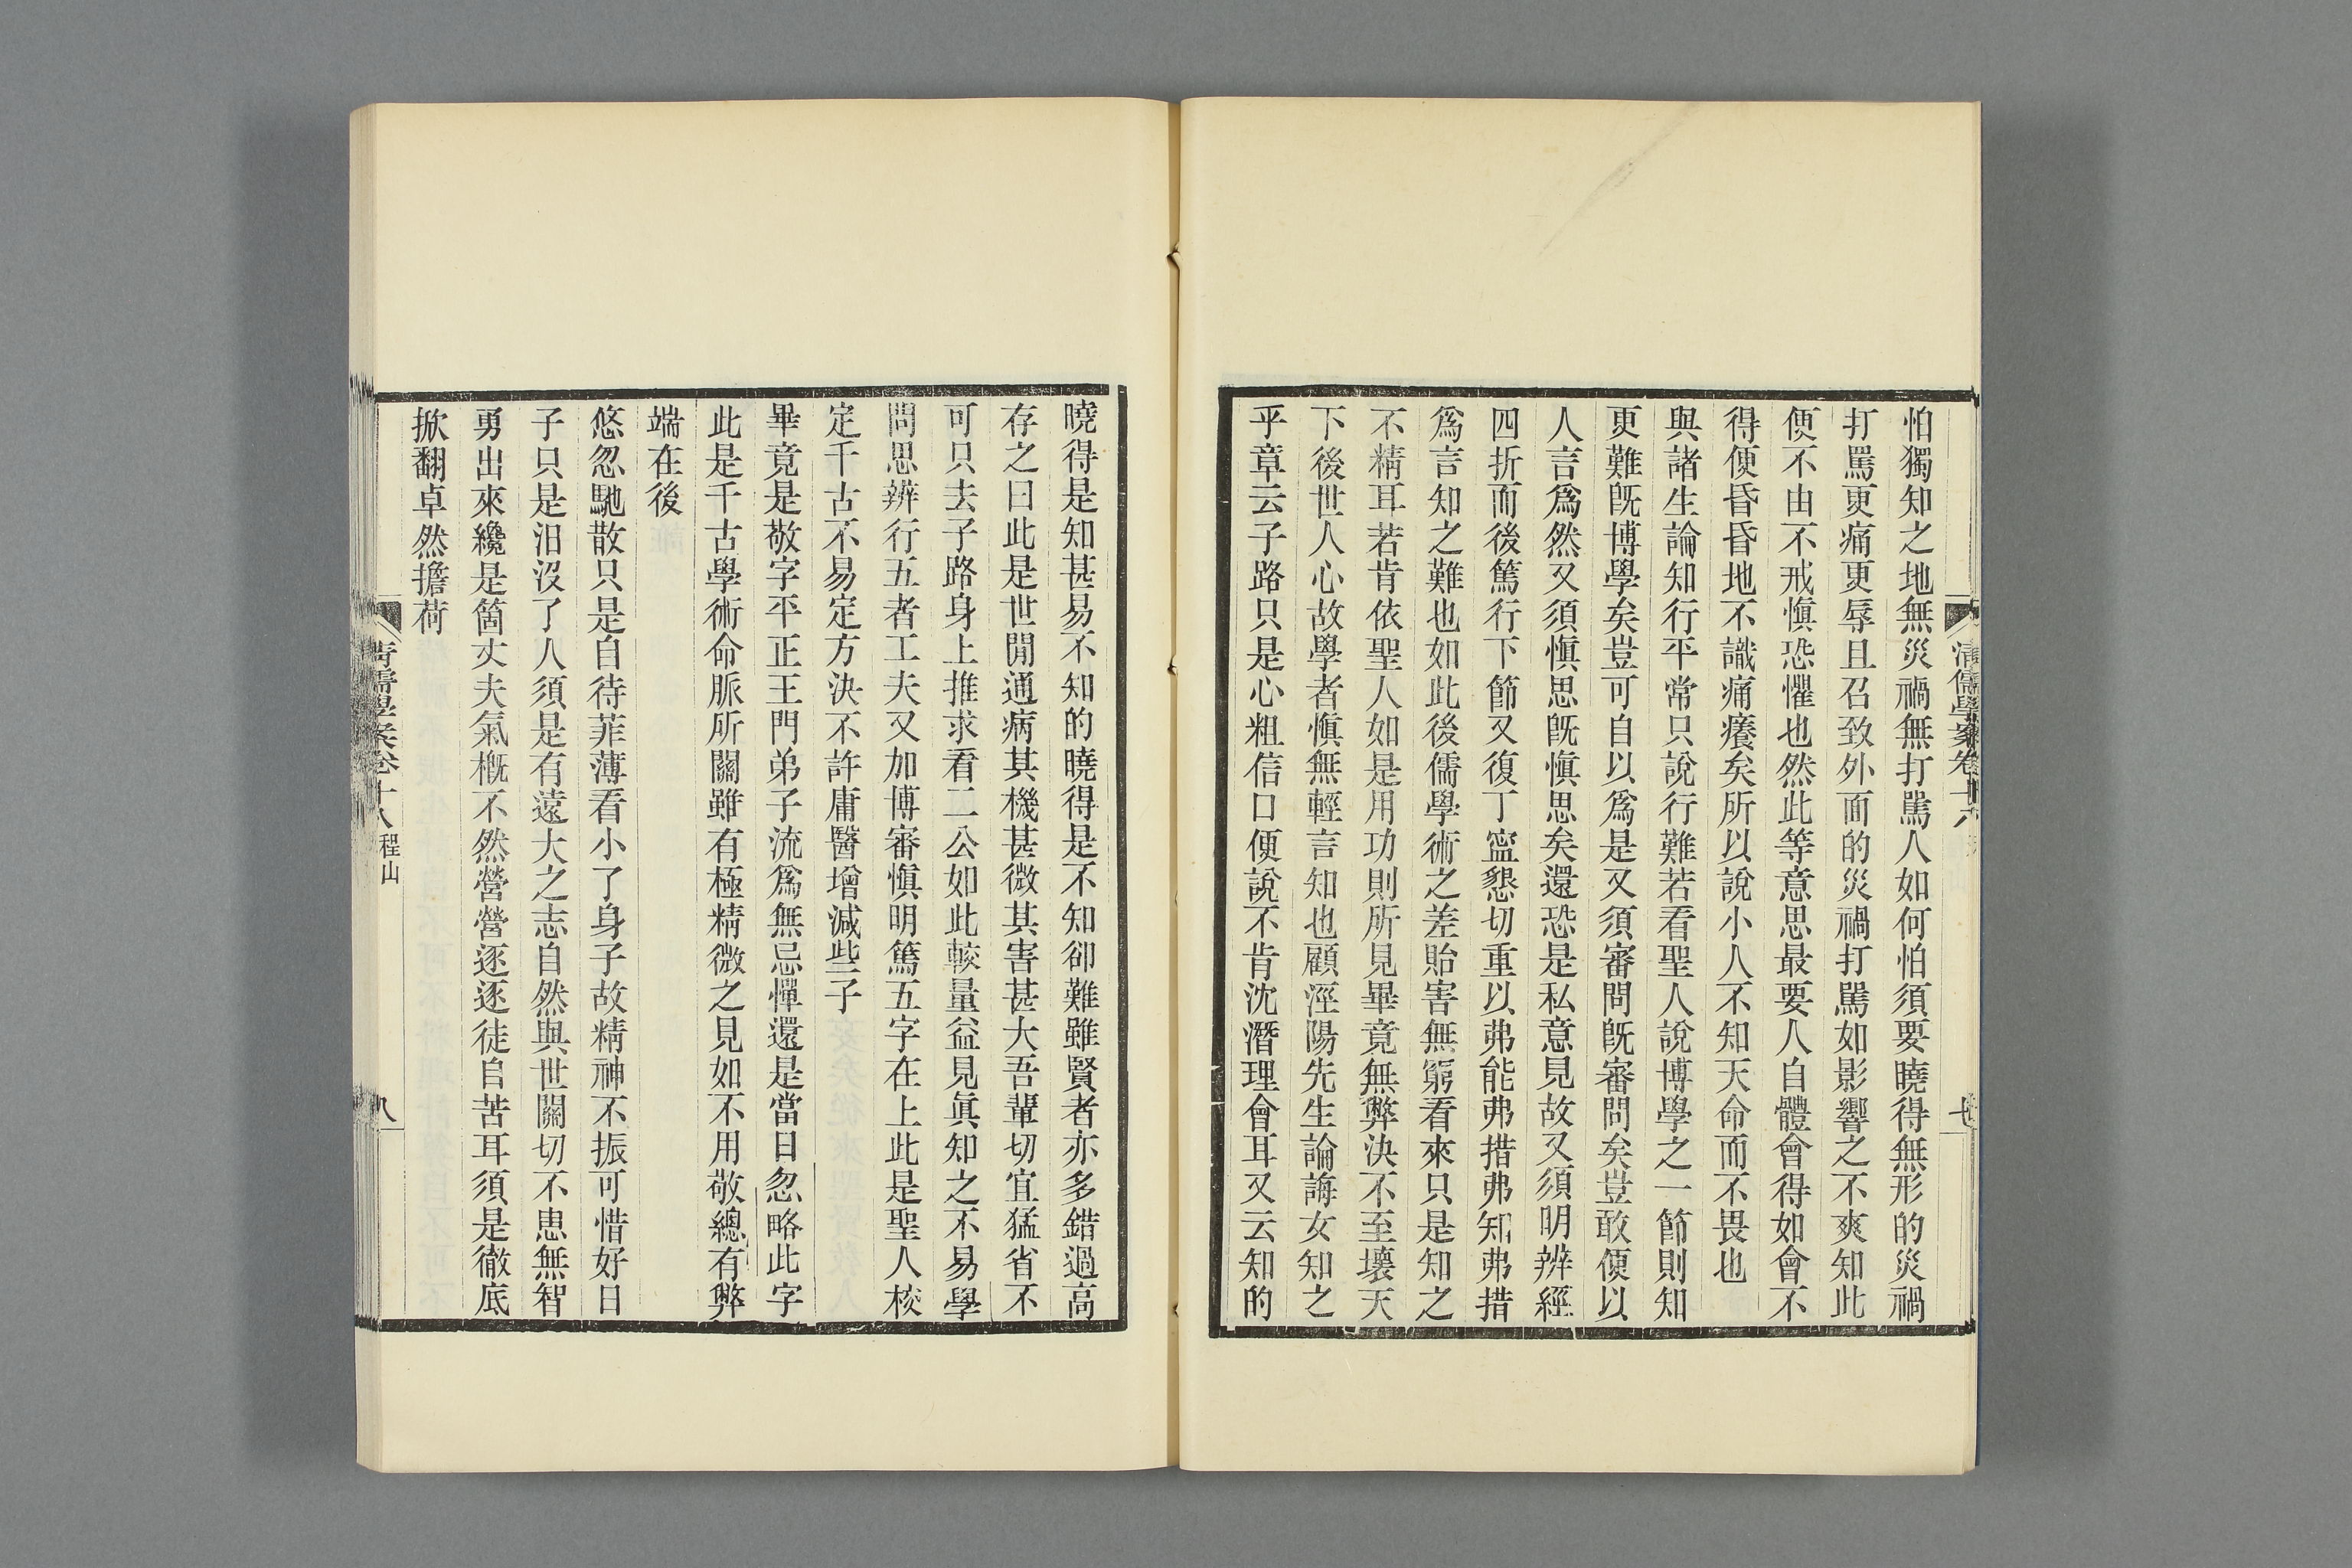 清儒學案卷十八
七
怕獨知之地無災禍無打罵人如何怕須要曉得無形的災禍
打罵更痛更辱且召致外面的災禍打罵如影響之不爽知此
便不由不戒愼恐懼也然此等意思最要人自體會得如會不
得便昏昏地不識痛癢矣所以說小人不知天命而不畏也
與諸生論知行平常只說行難若看聖人說博學之一節則知
更難旣博學矣豈可自以爲是又須審問旣審問矣豈敢便以
人言爲然又須愼思旣愼思矣還恐是私意見故又須明辨經
四折而後篤行下節又復丁寍懇切重以弗能弗措弗知弗措
爲言知之難也如此後儒學術之差貽害無窮看來只是知之
不精耳若肯依聖人如是用功則所見畢竟無弊決不至壞天
下後世人心故學者愼無輕言知也顧涇陽先生論誨女知之
乎章云子路只是心粗信口便說不肯沈潛理會耳又云知的
曉得是知甚易不知的曉得是不知卻難雖賢者亦多錯過高
存之曰此是世閒通病其機甚微其害甚大吾輩切宜猛省不
可只去子路身上推求看二公如此較量益見眞知之不易學
問思辨行五者工夫又加博審愼明篤五字在上此是聖人校
定千古不易定方決不許庸醫增減些子
畢竟是敬字平正王門弟子流爲無忌憚還是當日忽略此字
此是千古學術命脈所關雖有極精微之見如不用敬總有弊
端在後
悠忽馳散只是自待菲薄看小了身子故精神不振可惜好日
子只是汨沒了人須是有遠大之志自然與世關切不患無智
勇出來纔是箇丈夫氣概不然營營逐逐徒自苦耳須是徹底
掀翻卓然擔荷
清儒學案卷十八 程山
八